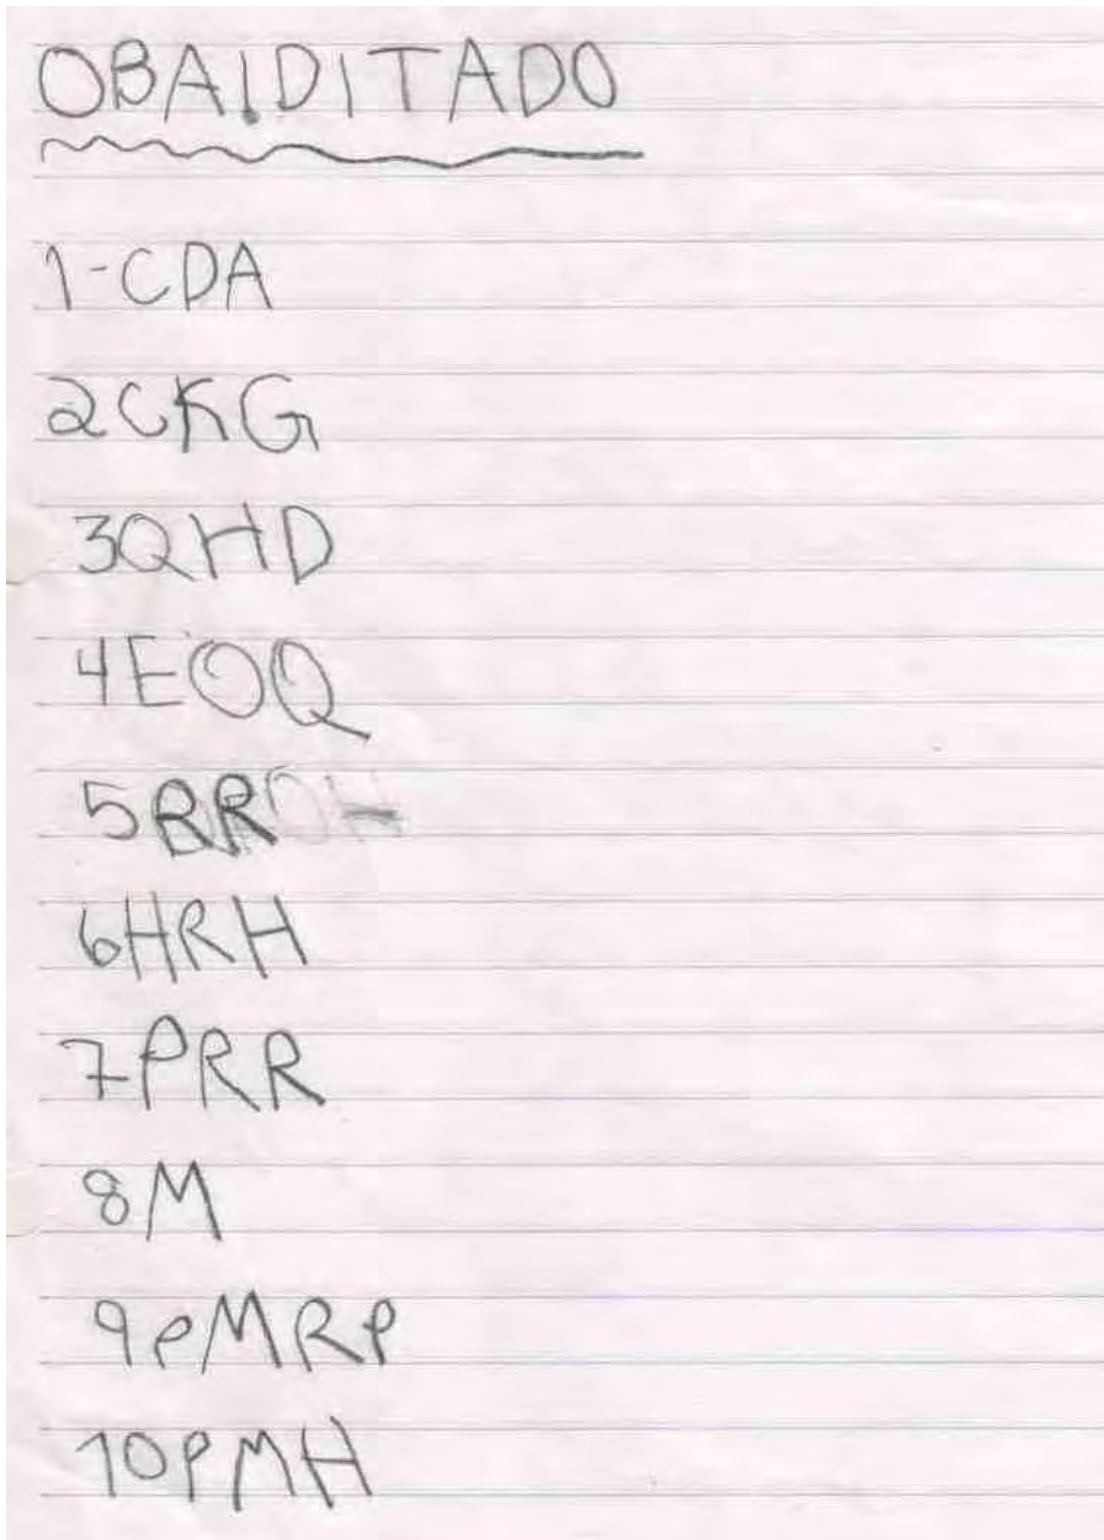 OBA!DITADO
1-CDA
2CKG
3QHD
4EOQ
5RR
6HRH
7PRR
8M
9PMRP
10PMH